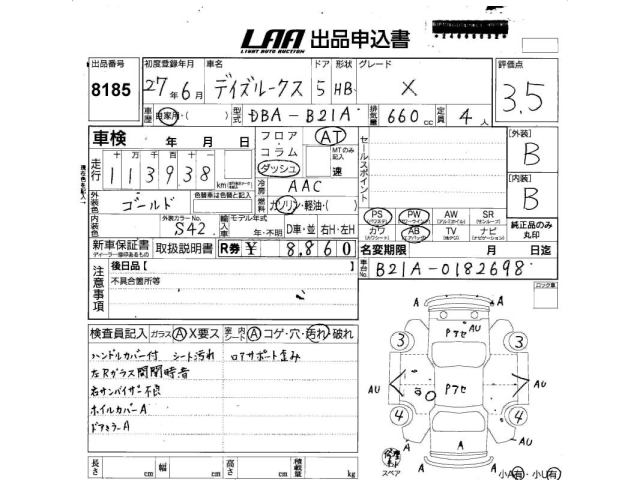 LAA 出品申込書
LIGHT AUTO AUCTION
出品番号 初度登録年月 車名 ドア 形状 グレード 評価点
8185 27年6月 デイズルークス 5 HB X 3.5
車歴 自家用・( ) 型式 DBA-B21A 排気量 660cc 定員 4人
車検 年 月 日 フロア・コラム・ダッシュ AT MTのみ記入 速 セールスポイント [外装] B
走行 十 万 千 百 十 113938km 冷房 AAC [内装] B
現在色を記入
外装色 ゴールド 色替車は色替と記入 燃料 ガソリン・軽油・( )
PS PW AW SR 純正品のみ丸印
カワ AB TV ナビ
内装色 外装カラーNo. S42 輸入車 モデル年式 年・不明 D車・並 右H・左H
新車保証書 取扱説明書 R券 ¥ 8,860 名変期限 月 日迄
ディーラー捺印あるもの
注意事項 後日品[ ] 車台No. B21A-0182698
不具合箇所等
ロック車
検査員記入 ガラス A X要ス 室内シート A コゲ・穴・汚れ・破れ
ハンドルカバー付 シート汚れ ロアサポート歪み
左Rガラス開閉時音
右サンバイザー不良
ホイルカバーA
ドアミラーA
Pアセ AU
3 3
AU Pアセ AU
4 4
A A
A A A
スペア 小A有・小U有
長さ cm 幅 cm 高さ cm 積載量 kg